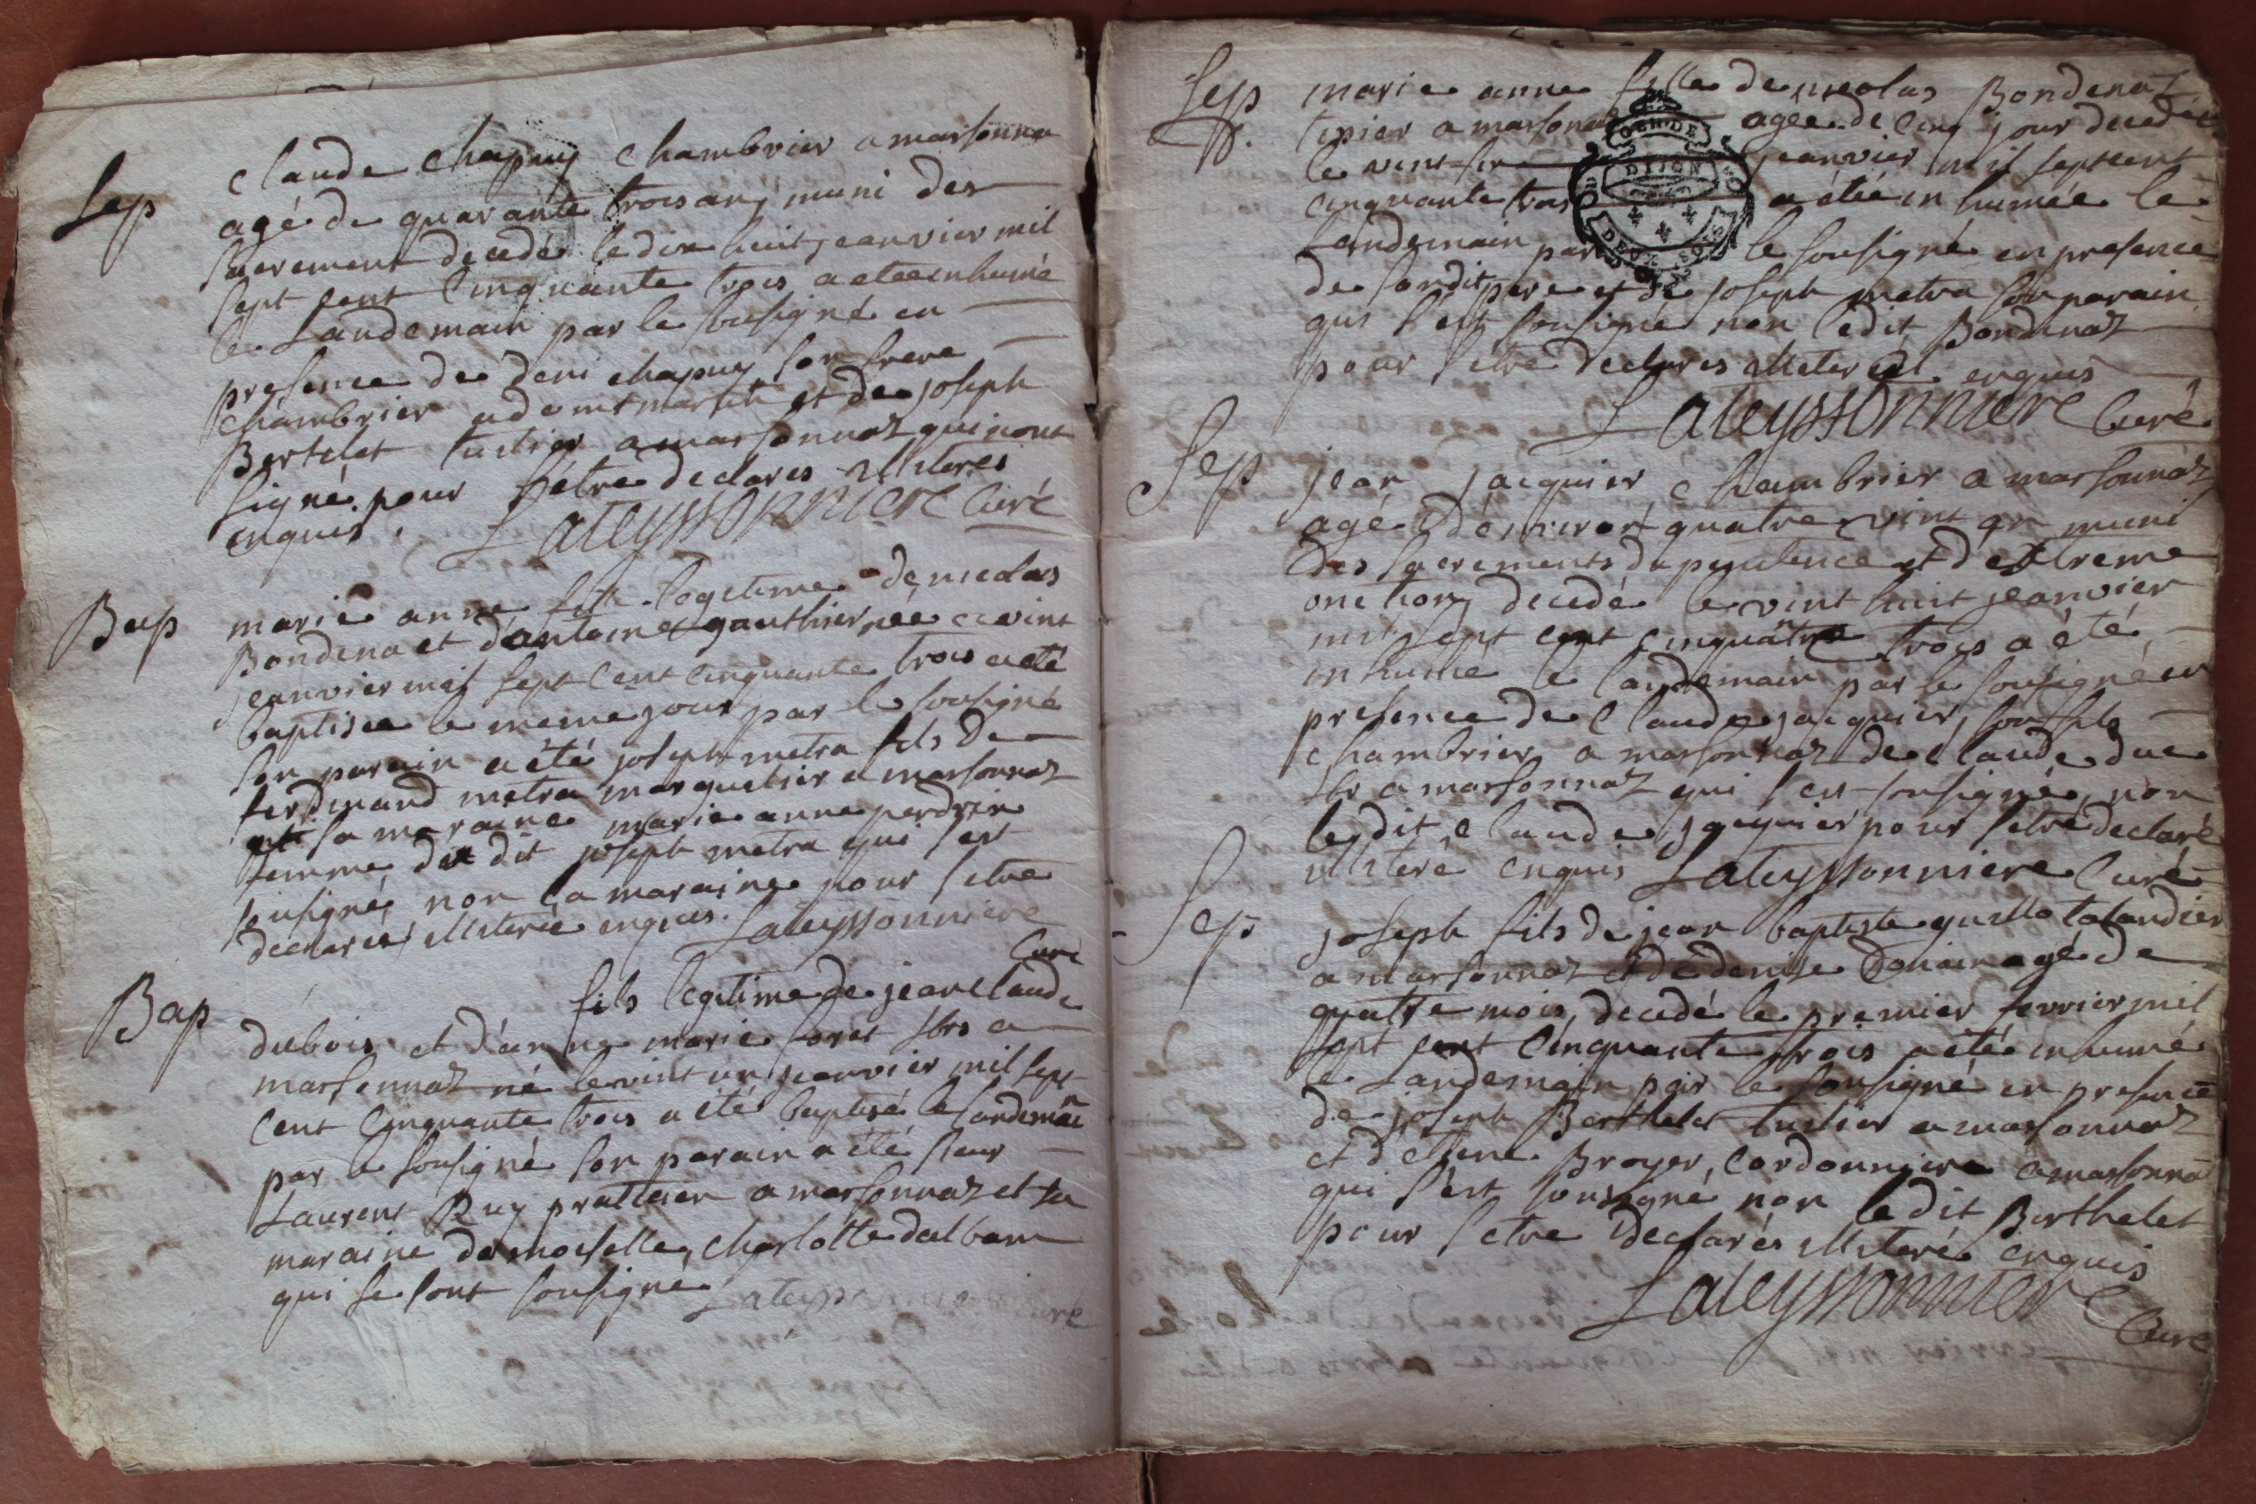 Sep
claude chapuy chambrier a marsonna
agé de quarante trois ans muni des
sacrement decedé le dix huit jeanvier mil
sept cent cinquante trois a eté enhumé
le Landemain par le sousigné en
presence de deni chapuy son frere
chambrier a et de joseph
Bertelet tustier a marsonnaz qui nont
signé pour setre declares illiteres
enquis. Lateyssonniere Curé
Bap
marie anne fille legetime de nicolas
Bondena et dantoine gauthier nee ce vint
jeanvier mil sept cent cinquante trois a eté
baptisee le meme jour par le sousigné
son parain a été joseph metra fils de
ferdinand metra marquelier a marsonnaz
et sa maraine marie anne perdrix
femme du dit joseph metra qui sest
sousigné non la maraine pour setre
declarée illiterée enquis. Lateyssonniere
Curé
Bap
fils legitime de jean claude
dubois et d'anne marie foret sbrs a
marsonnaz né le vint un jeanvier mil sept
cent cinquante trois a été baptisé le landemain
par le sousigné son parain a été sieur
Laurent Puy pratticien a marsonnaz et sa
maraine demoiselle charlotte dalbam
qui se sont sousigné
Lateyssonniere Curé
Sep
marie anne fille de nicolas Bondenaz
tixier a marsonnaz agée de cinq jour decedée
le vint six jeanvier mil sept cent
cinquante trois a étée in humée le
Landemain par le sousigné en presence
de sondit pere et de joseph metra son parain
qui sest sousigné non ledit Bondenaz
pour setre declares illiteré enquis
GEN. DE
DIJON
DEUX SOLS
Lateyssonniere Curé
Sep
jean jacquier chambrier a marsonnaz
agé d'environ quatre vint an muni
des sacrements de penitence et d extreme
onction decedé le vint huit jeanvier
mil sept cent cinquante trois a été
inhumé le landemain par le sousigné en
presence de Claude jacquier son fils
chambrier a marsonnaz de claude duc
sbr a marsonnaz qui sest sousigné non
ledit claude jacquier pour setre declaré
illiteré enquis Lateyssonniere Curé
Sep
joseph fils de jean baptiste guillo talandier
a marsonnaz et de denise Donain agé de
quatre mois, decedé le premier fevrier mil
sept cent cinquante trois a été inhumé
le Landemain par le sousigné en presence
de joseph Berthelet tustier a marsonnaz
et d etiene Broyer, cordonniere a marsonna
qui s'est sousigné non ledit Berthelet
pour setre declarés illiteré enquis
Lateyssonniere
Curé